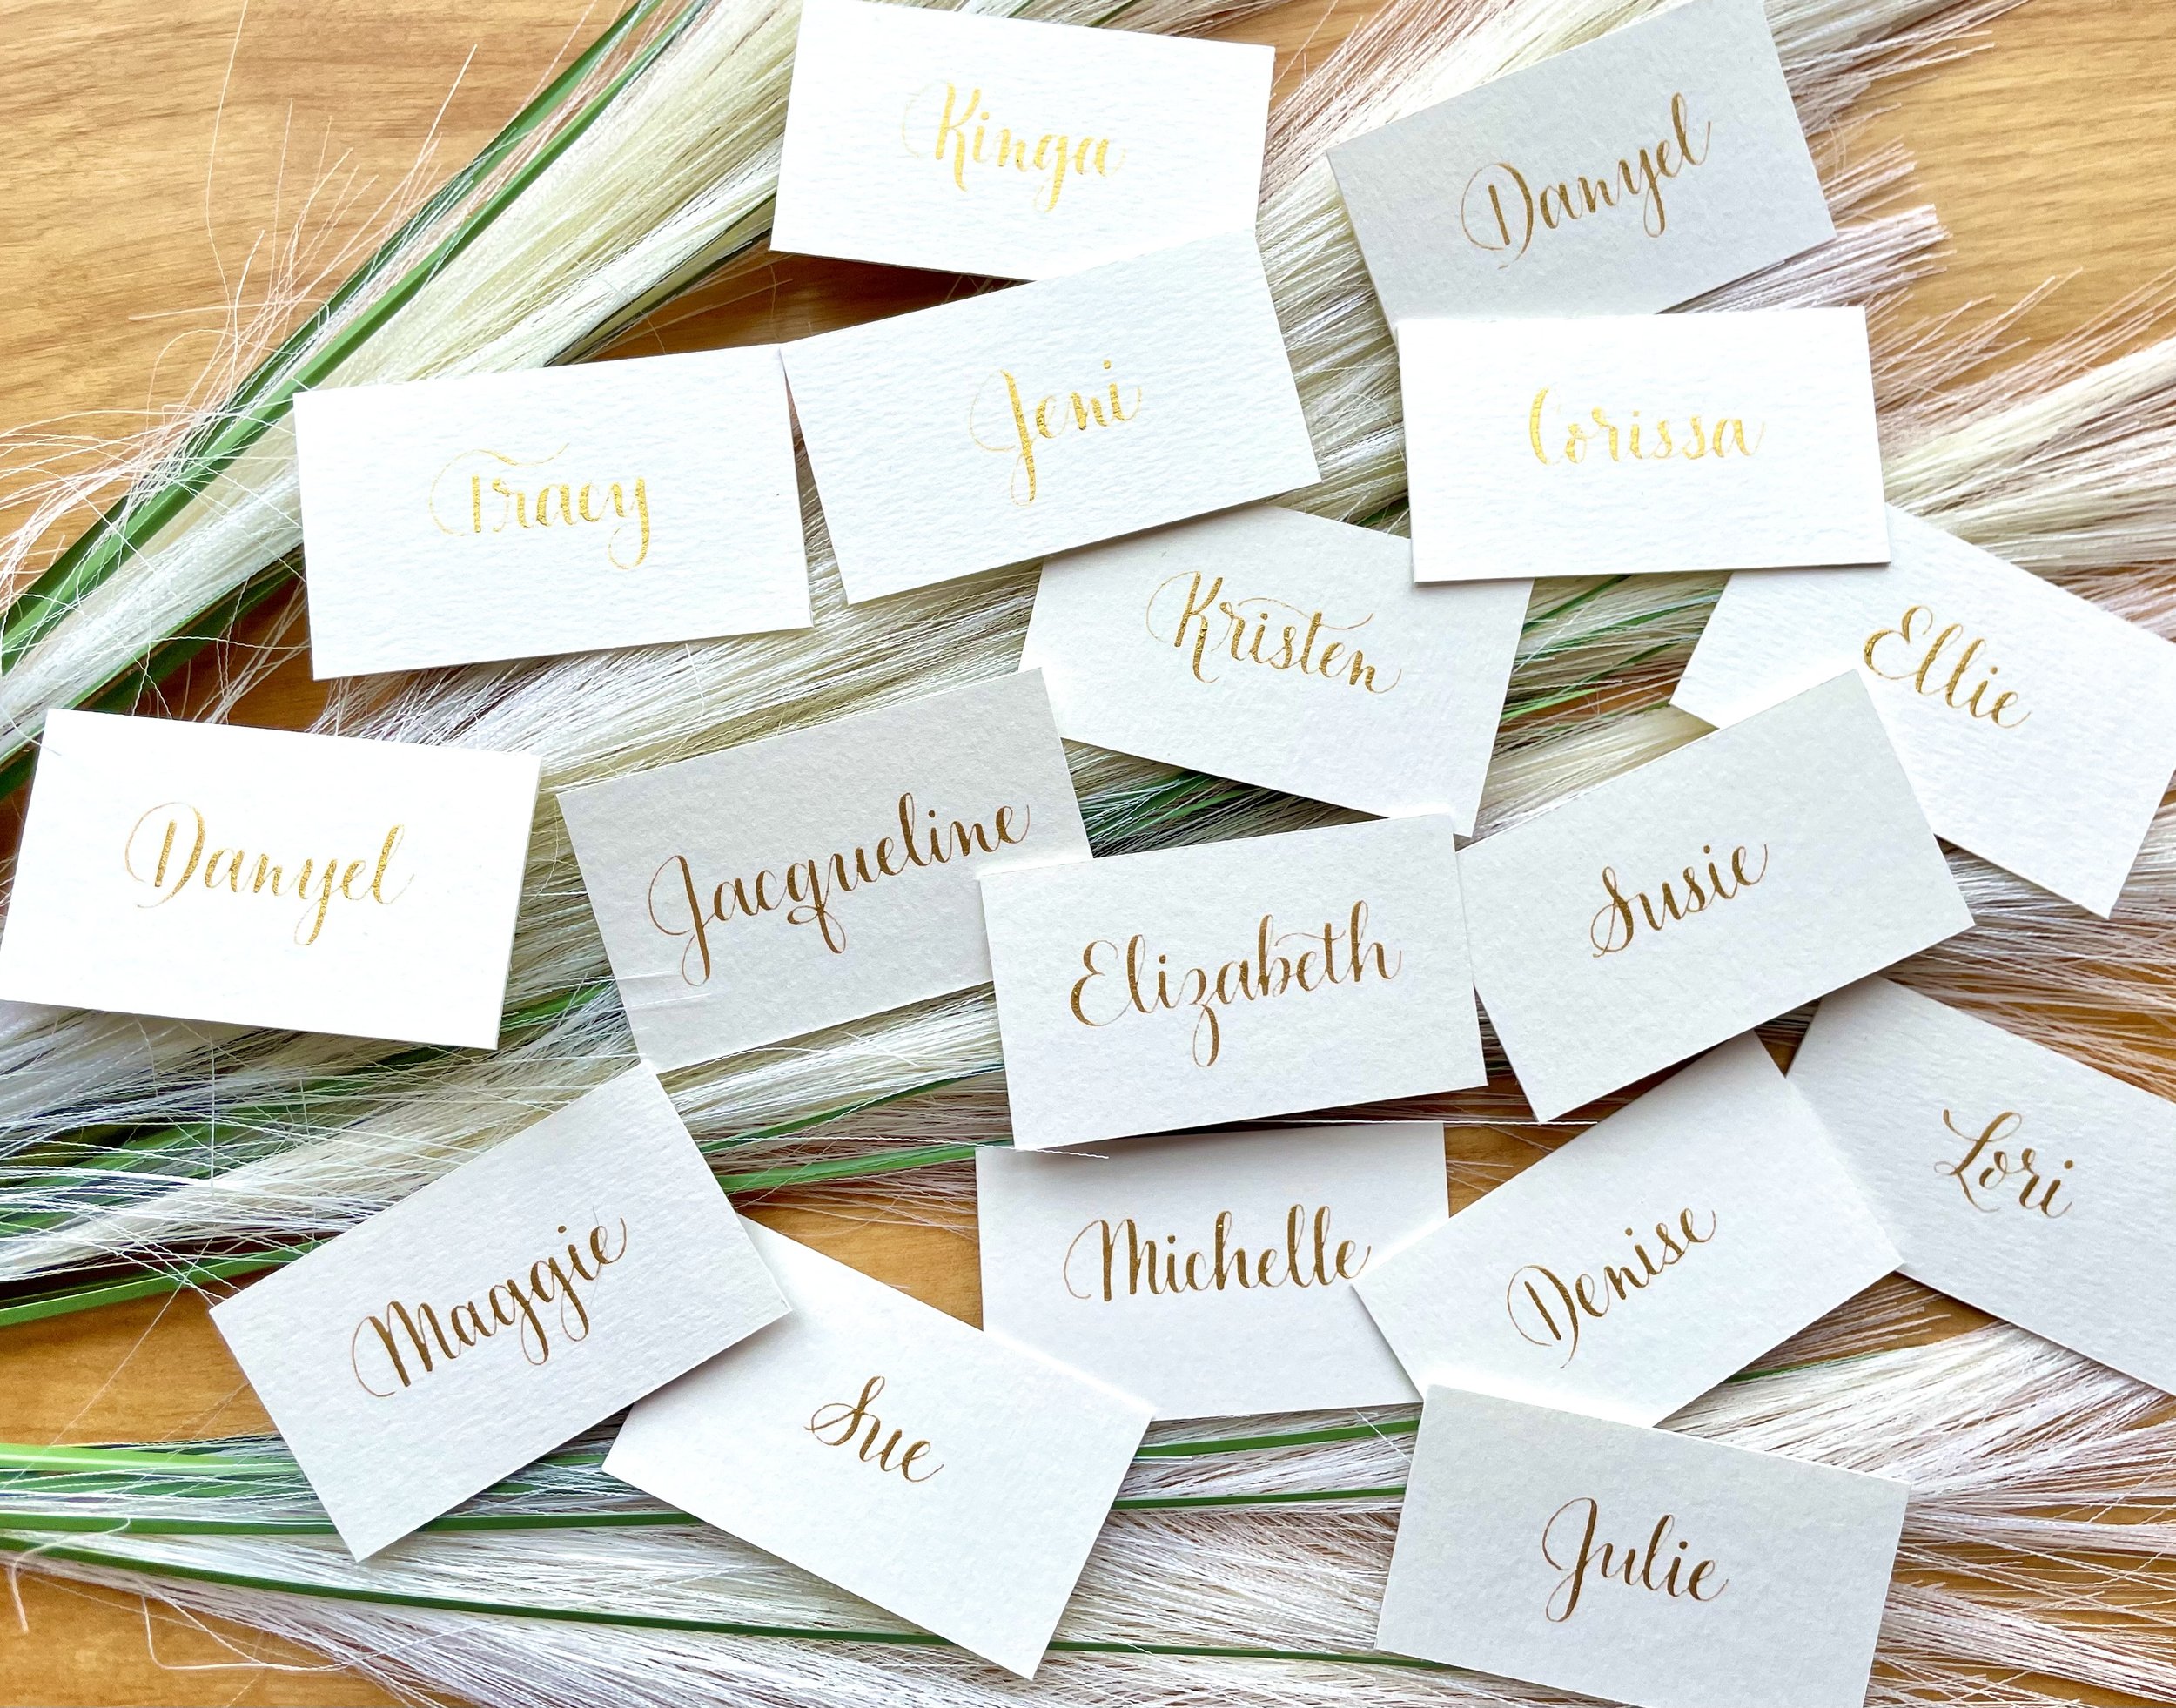 Kinga
Danyel
Jeni
Corissa
Tracy
Kristen
Ellie
Danyel
Jacqueline
Elizabeth
Susie
Lori
Maggie
Michelle
Denise
Sue
Julie